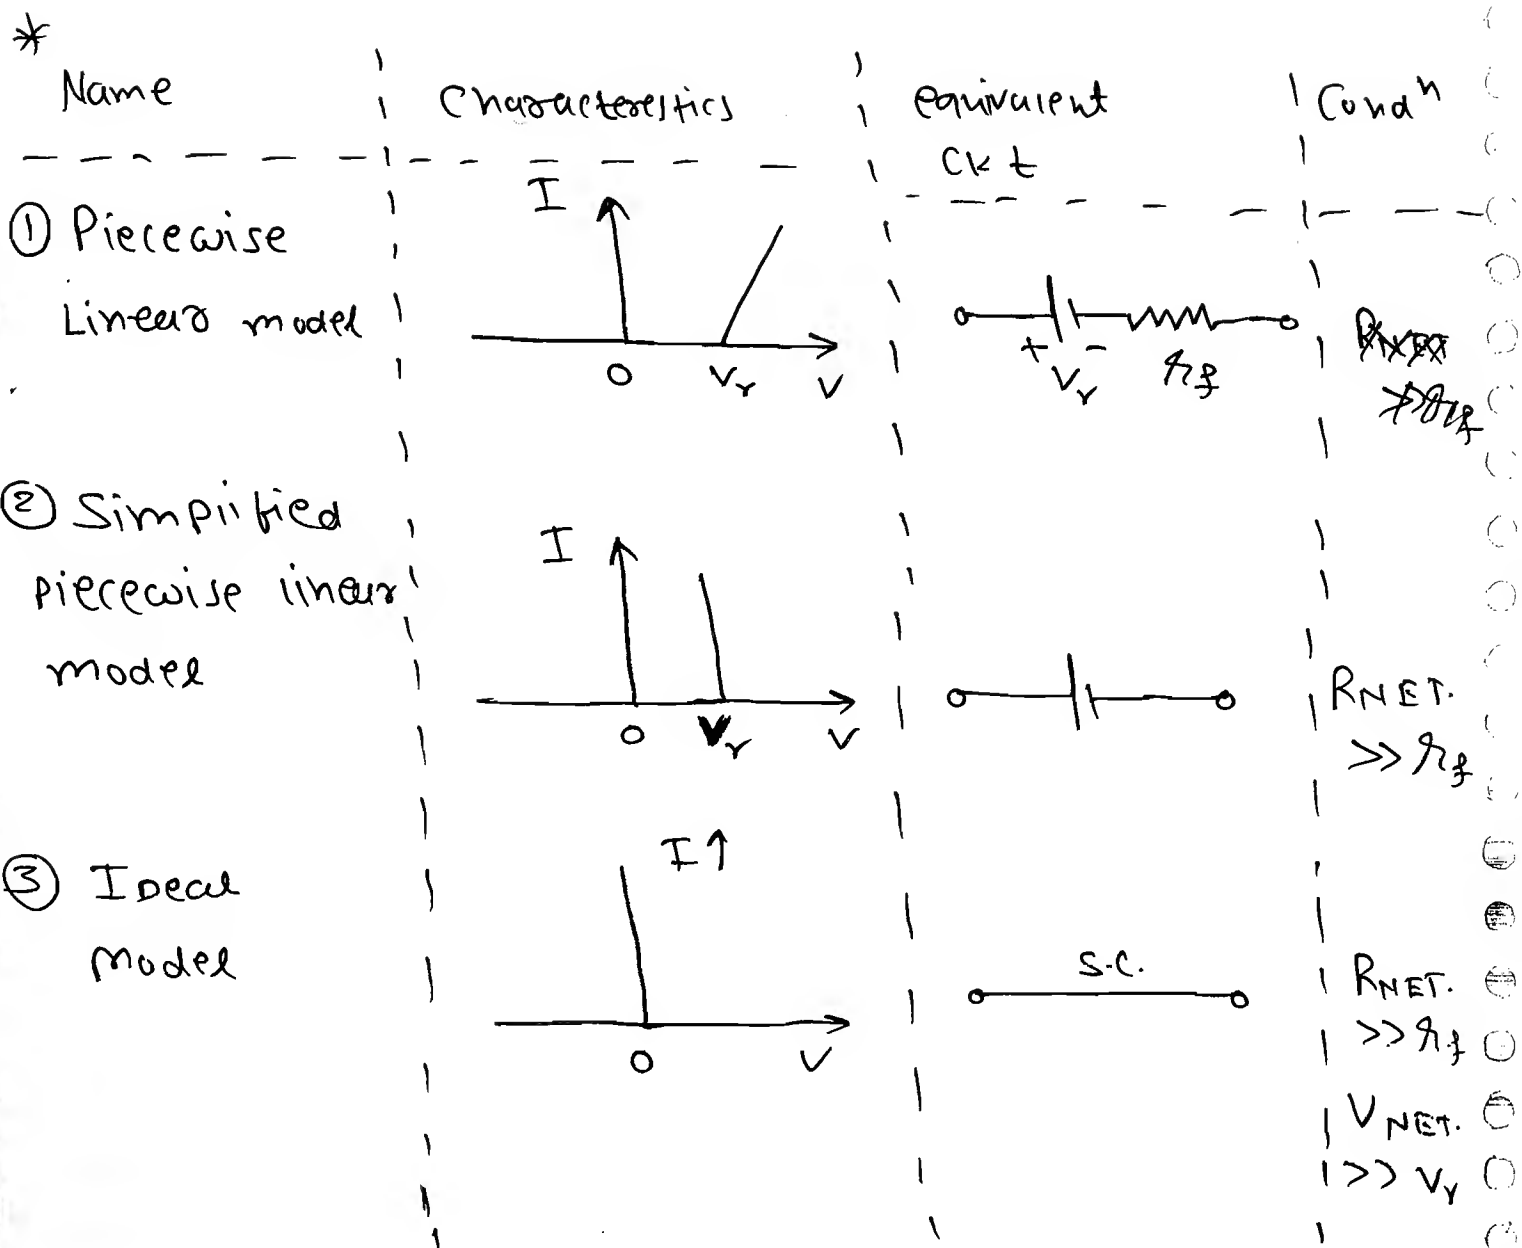 *
Name
Characterestics
equivalent
ckt
Condⁿ
① Piecewise
Linear model
I
O
Vγ
V
+ -
Vγ
rf
② Simplified
piecewise linear
model
I
O
Vγ
V
RNET.
>> rf
③ Ideal
Model
I↑
O
V
S.C.
RNET.
>> rf
VNET.
>> Vγ